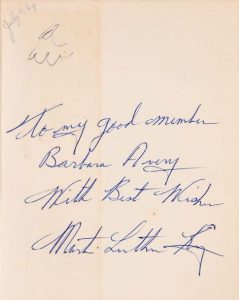 July 5, 64
To my good member
Barbara Avery
With Best Wishes
Martin Luther King